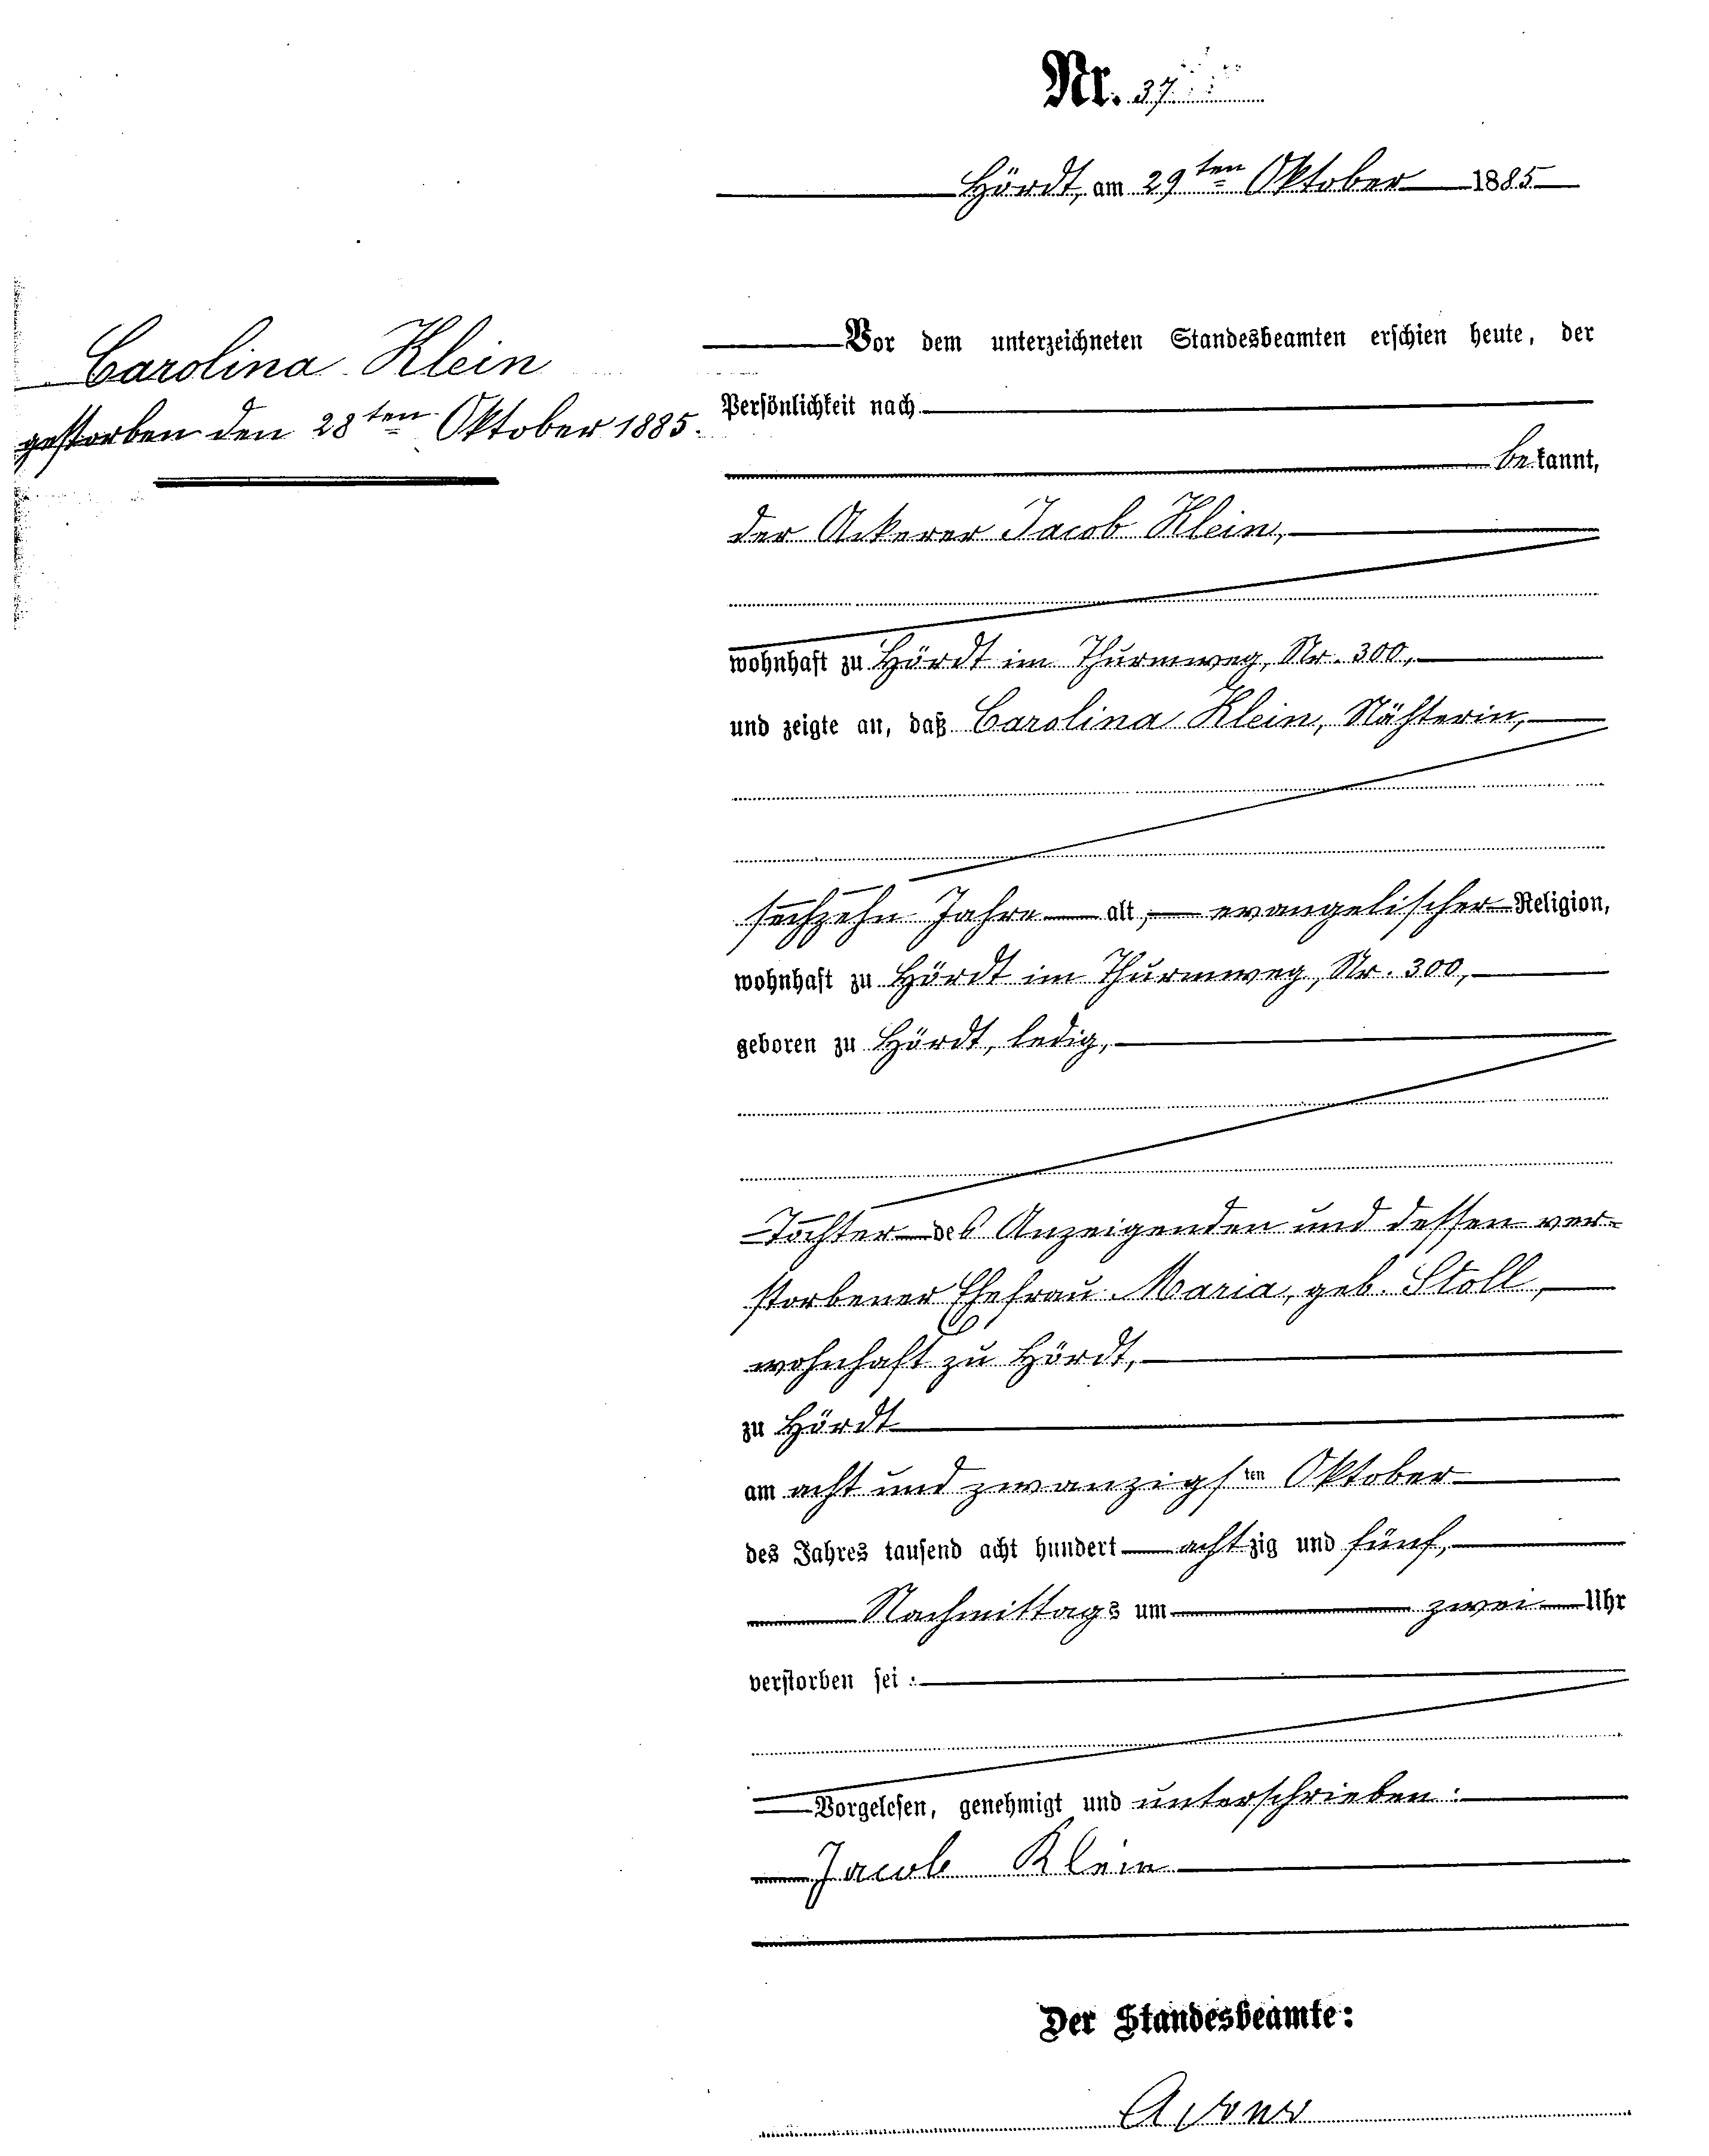 Nr. 37
Hördt, am 29ten Oktober 1885
Carolina Klein
gestorben den 28ten Oktober 1885.
Vor dem unterzeichneten Standesbeamten erschien heute, der
Persönlichkeit nach
bekannt,
der Ackerer Jacob Klein,
wohnhaft zu Hördt im Thurmweg, Nr. 300,
und zeigte an, daß Carolina Klein, Nähterin,
sechzehn Jahre alt, evangelischer Religion,
wohnhaft zu Hördt im Thurmweg, Nr. 300,
geboren zu Hördt, ledig,
Tochter des Anzeigenden und dessen ver-
storbener Ehefrau Maria, geb. Stoll,
wohnhaft zu Hördt,
zu Hördt
am acht und zwanzigsten Oktober
des Jahres tausend acht hundert achtzig und fünf,
Nachmittags um zwei Uhr
verstorben sei:
Vorgelesen, genehmigt und unterschrieben:
Jacob Klein
Der Standesbeamte: